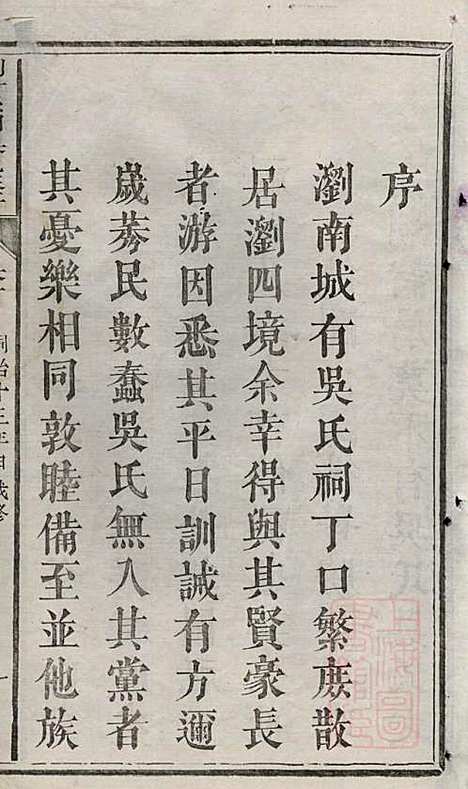 序
瀏南城有吳氏祠丁口繁庶散
居瀏四境余幸得與其賢豪長
者游因悉其平日訓誡有方邇
嵗莠民數蠢吳氏無入其黨者
其憂樂相同敦睦備至並他族
同治十三年甲戌修